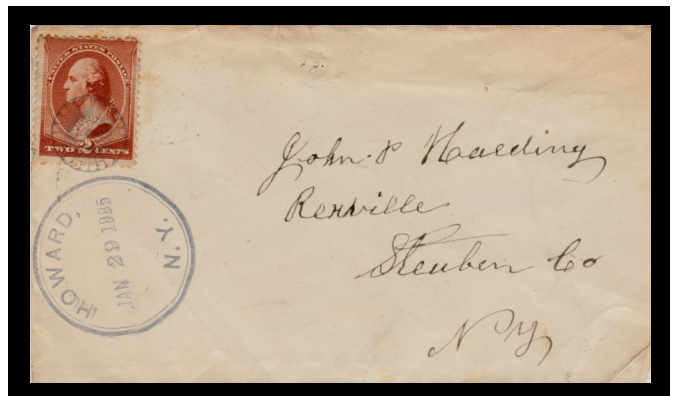 UNITED STATES POSTAGE
TWO 2 CENTS
HOWARD, N.Y.
JAN 29 1885
John P Harding
Rexville
Steuben Co
N Y